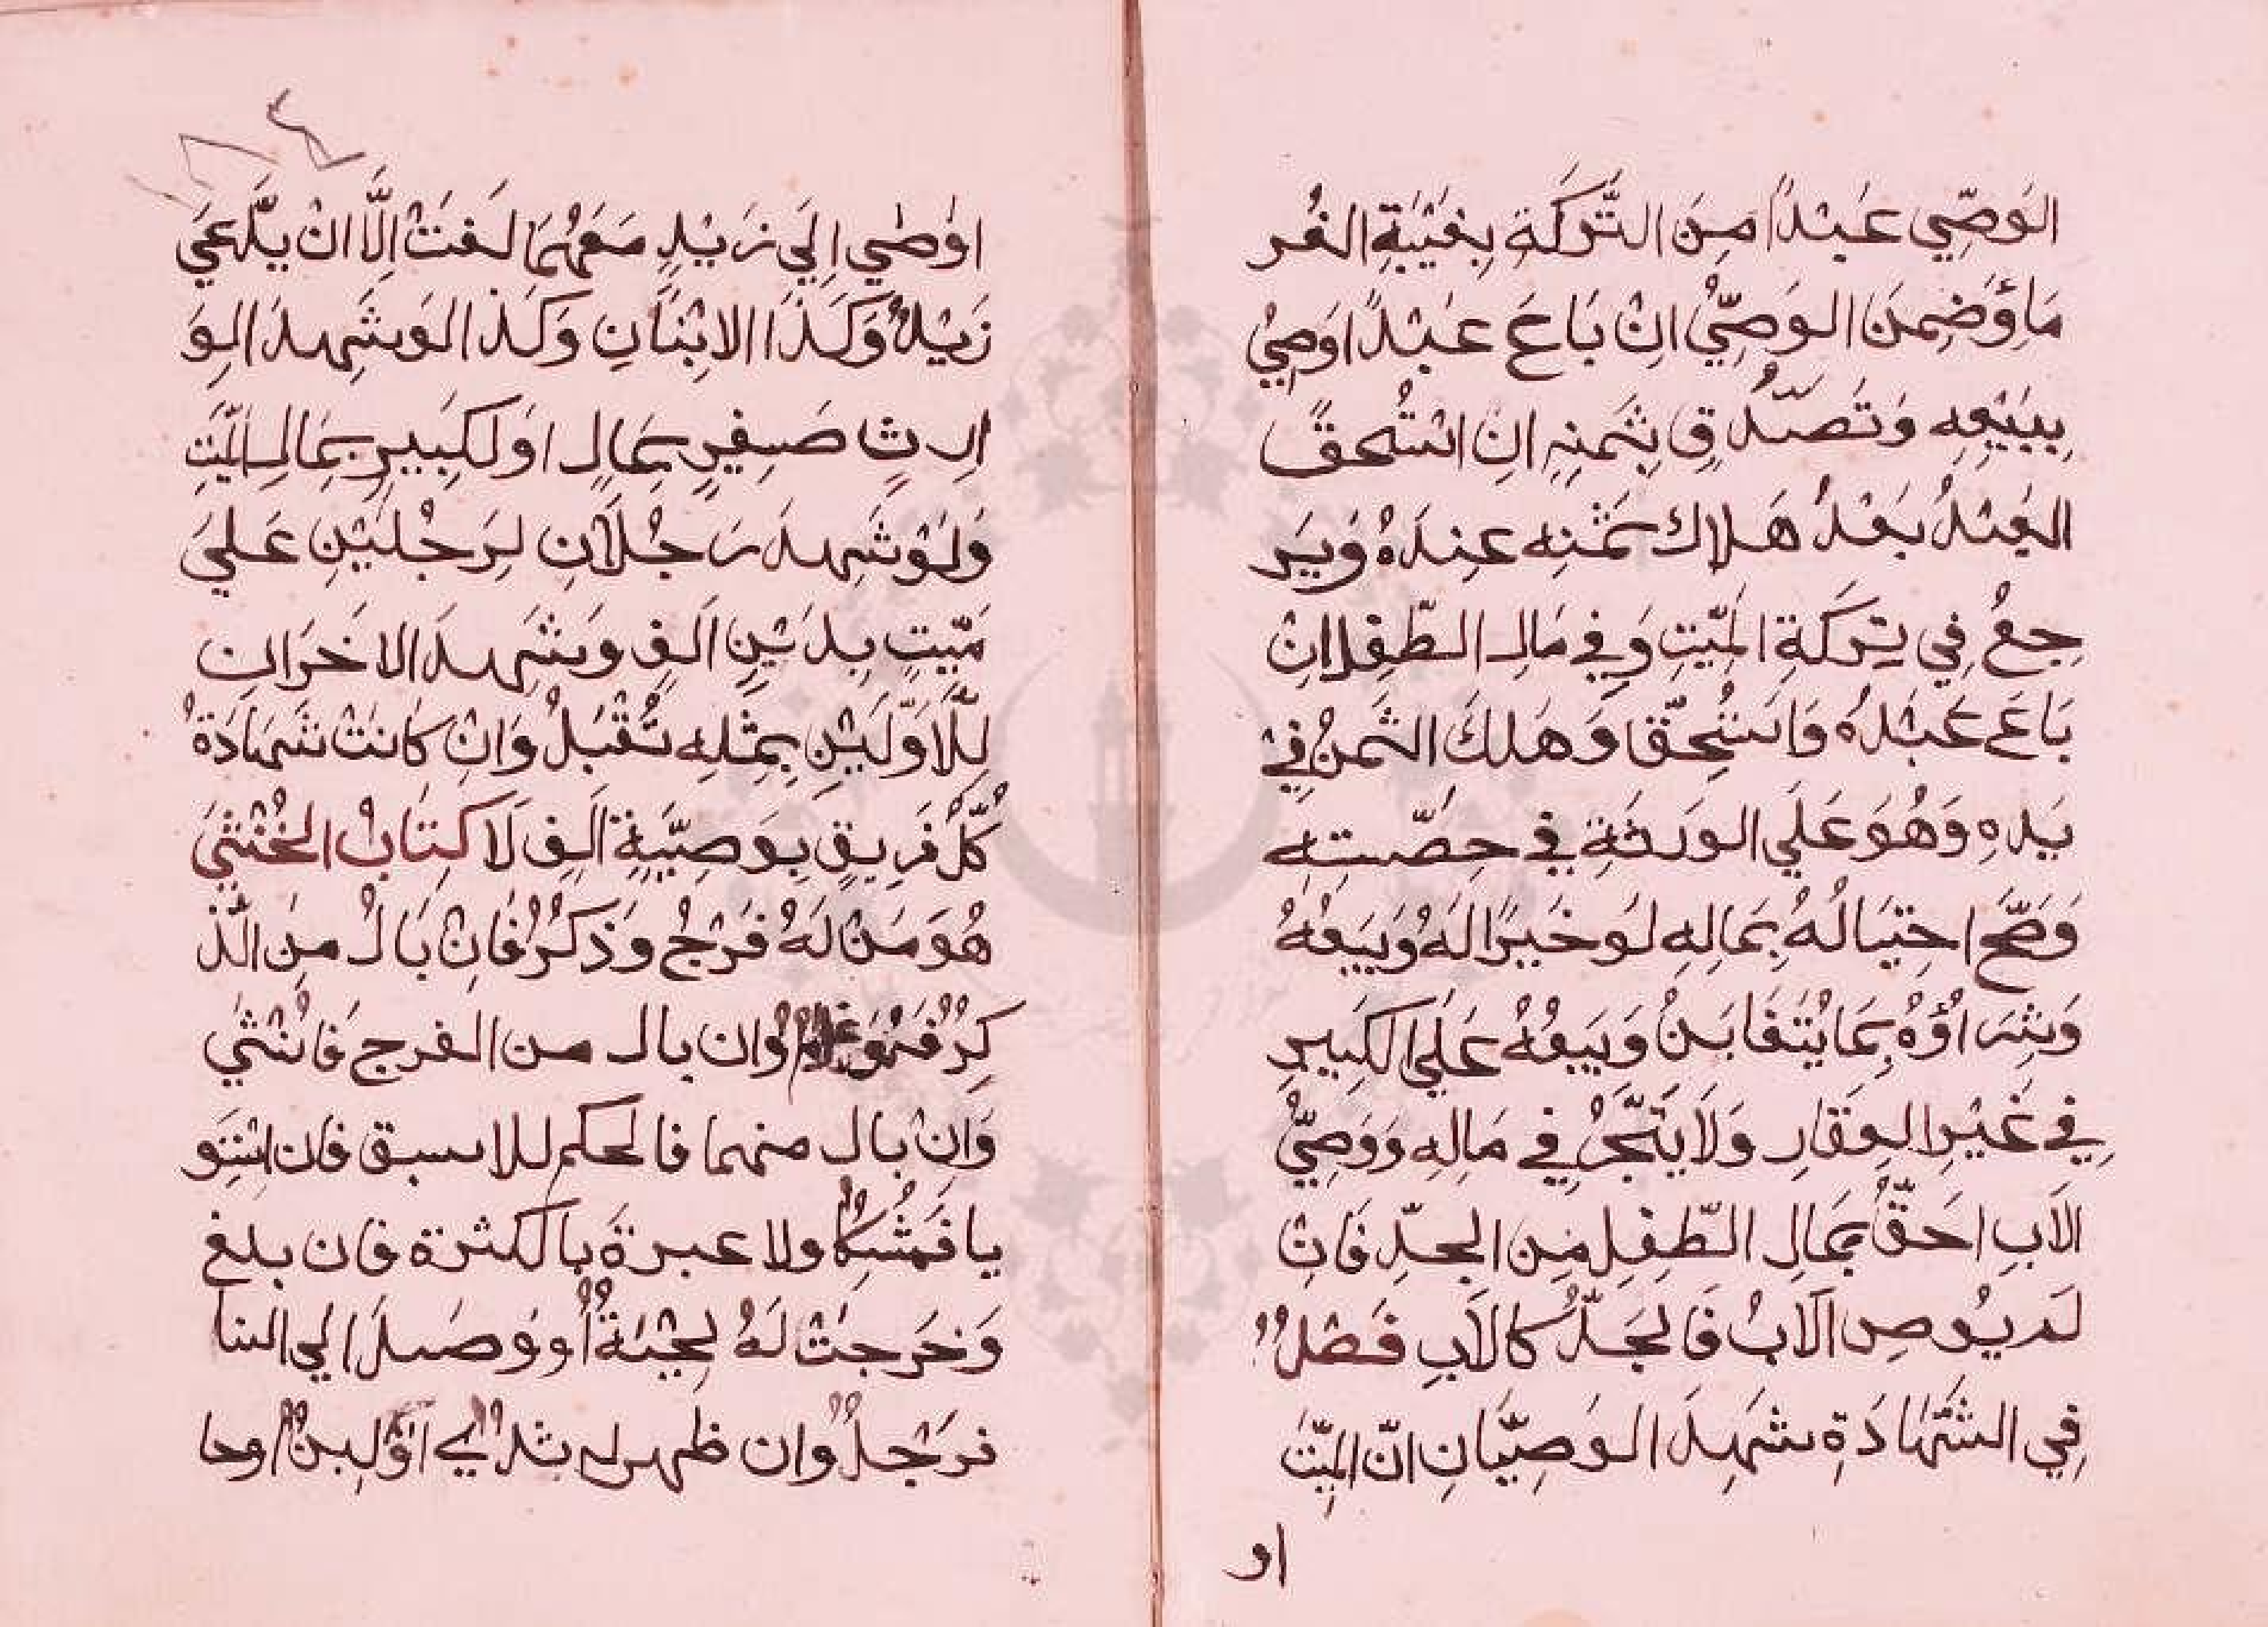 الوَصِّي عَبْدًا مِنَ التَّرِكَةِ بِغَيْبَةِ الغُر
مَاؤَضِمنَ الوَصِّيُ اِنْ بَاعَ عَبْدًا اوَصِيْ
بِبَيْعِهِ وَتَصَدُّقٍ بِثَمنِهِ اِن استُحقَّ
العَبْدُ بَعْدُ هَلاك ثَمَنِه عِندَهُ وَيَر
جِعُ فِي تِركَةِ المَيِّتِ وَفِي مَالِ الطِّفْلِ اِنْ
بَاعَ عَبْدُهُ وَاسْتُحِقّ وَهَلكَ الثَّمنُ فِيْ
يَدهِ وَهُوَ عَلَي الوَرثَةِ فِي حِصَّتِه
وَصَّحَ احتِيَالُهُ بِمَالِهِ لَو خَيرًا لَهُ وَبَيعُهُ
وَشِرَاؤُهُ بِمَا يُتَغَابَنُ وَبَيعُهُ عَلَي الكَبِيرِ
فِي غَيْرِ العِقَارِ وَلَا يَتَّجِرُ فِي مَالِهِ وَوَصِيُّ
الاَبِ احَقُّ بِمَالِ الطِّفلِ مِن الجدِّ فَاِنْ
لَم يُوصِ الاَبُ فَالجَدُّ كالاَبِ فَصْلٌ
فِي الشَّهَادَةِ شَهِدَ الوَصِيَّانِ انّ المَيِّتَ
او
اوْصٰي اِلَي زَيْدٍ مَعَهُمَا لَغَتْ اِلَّا انْ يدَّعيَ
زَيْدٌ وَكَذَا الابْنَانِ وَكَذا لَو شَهِدَ الوَ
ارِثِ صَغِيرٍ بِمَالٍ اوَ لكَبِيرٍ بِمَالِ المَيّتِ
وَلَوْ شَهِدَ رَجُلَانِ لِرَجُلَيْنِ عَليَ
مَيِّتٍ بِدَيْنِ اَلفٍ وَشَهِدَ الاخَرَانِ
لِلَاوَّلَيْنِ بِمِثلِه تُقْبَلُ وَاِنْ كَانَتْ شَهَادَةُ
كُلّ فَرِيقٍ بِوَصِيَّةِ اَلفٍ لَا كِتَابُ الخُنْثيَ
هُوَ مَنْ لَهُ فَرْجٌ وَذَكَرٌ فَاِنْ بَالَ مِنَ الذَّ
كِرُ فَهُوَ غلام وان بال من الفرج فَانْثي
وَاِنْ بال منهما فالحكم للاسبق فان اسْتَو
يا فَمُشكل ولا عبرةَ بالكثرة فان بلغ
وَخَرجتْ لَهُ لِحْيَةٌ او وَصَلَ الي النسا
فرَجلٌ وان ظهر له ثدي او لبنٌ او حا